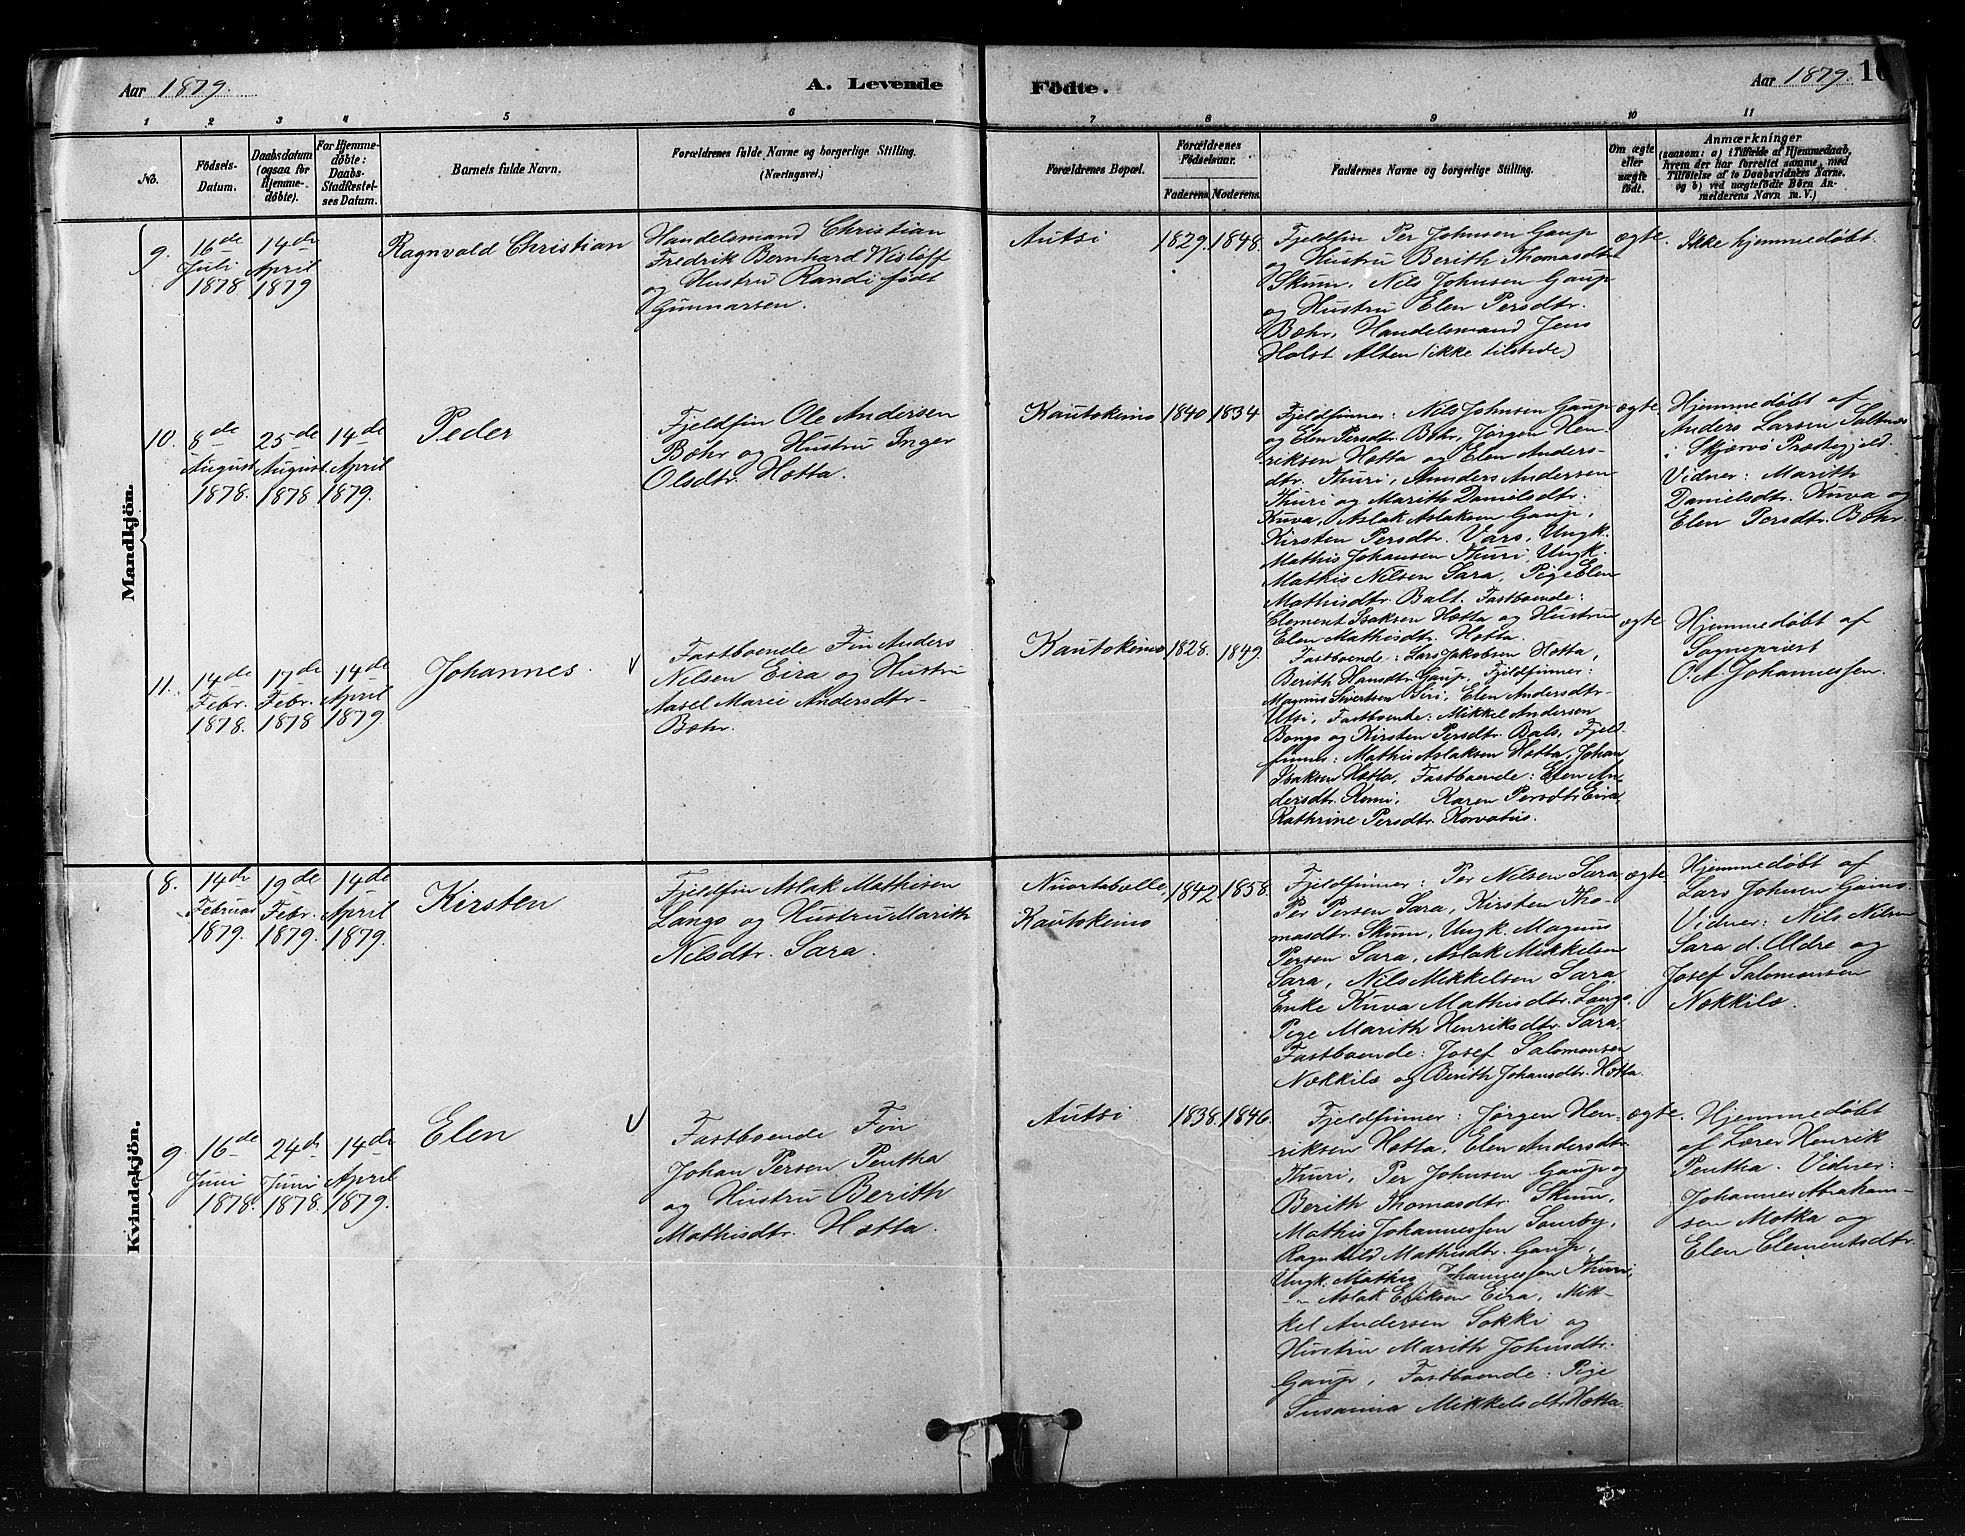 Aar 1879.
A. Levende
Födte.
Aar 1879.
10
1 2 3 4 5 6 7 8 9 10 11
No.
Födsels-
Datum.
Daabsdatum
(ogsaa for
Hjemme-
døbte).
For Hjemme-
døbte:
Daabs-
Stadfæstel-
ses Datum.
Barnets fulde Navn.
Forældrenes fulde Navne og borgerlige Stilling.
(Næringsvei.)
Forældrenes Bopæl.
Forældrenes
Fødselsaar.
Faderens. Moderens.
Faddernes Navne og borgerlige Stilling.
Om ægte
eller
uægte
født.
Anmærkninger
(saasom: a) i Tilfælde af Hjemmedaab,
hvem der har forrettet samme, med
Tilføielse af to Daabsvidners Navne,
og b) ved uægtefödte Börn An-
melderens Navn m.V.)
Mandkjön.
9.
16de
Juli
1878.
14de
April
1879
Ragnvald Christian
Handelsmand Christian
Fredrik Bernhard Wisløff
og Hustru Randi født
Gunnarsen.
Autsi
1829. 1848.
Fjeldfin Per Johnsen Gaup
og Hustru Berith Thomasdtr.
Skum, Nils Johnsen Gaup
og Hustru Elen Persdtr.
Bæhr, Handelsmand Jens
Holst Alten (ikke tilstede)
ægte.
Ikke hjemmedøbt.
10.
8de
August
1878.
25de
August
1878
14de
April
1879.
Peder
Fjeldfin Ole Andersen
Bæhr og Hustru Inger
Olsdtr. Hætta.
Kautokeino
1840 1834
Fjeldfinner: Nils Johnsen Gaup
og Elen Persdtr. Bæhr, Jørgen Hen-
riksen Hætta og Elen Anders-
dtr. Thuri, Anders Andersen
Thuri og Marith Danielsdtr.
Kuva, Aslak Aslaksen Gaup,
Kirsten Persdtr. Vars, Ungk.
Mathis Johansen Thuri, Ungk.
Mathis Nilsen Sara, Pige Elen
Mathisdtr. Balt. Fastboende:
Clement Isaksen Hætta og Hustru
Elen Mathisdtr. Hætta.
ægte.
Hjemmedøbt af
Anders Larsen Saltnes
i Skjervø Præstegjeld.
Vidner: Marith
Danielsdtr. Kuva og
Elen Persdtr. Bæhr.
11.
14de
Febr.
1878.
17de
Febr.
1878
14de
April
1879.
Johannes
Fastboende Fin Anders
Nilsen Eira og Hustru
Aasel Marie Andersdtr.
Bæhr.
Kautokeino
1828. 1849.
Fastboende: Lars Jakobsen Hætta,
Berith Hansdtr. Gaup, Fjeldfinner:
Magnus Sivertsen Siri, Elen Andersdtr.
Utsi, Fastboende: Mikkel Andersen
Bongo og Kirsten Persdtr. Bals, Fjeld-
finner: Mathis Aslaksen Hætta, Johan
Isaksen Hætta, Fastboende: Elen An-
dersdtr. Romi, Karen Persdtr. Eira,
Kathrine Persdtr. Korvatus.
ægte
Hjemmedøbt af
Sognepræst
O. A. Johannessen.
Kvindekjön.
8.
14de
Februar
1879.
19de
Febr.
1879.
14de
April
1879.
Kirsten
Fjeldfin Aslak Mathisen
Lango og Hustru Marith
Nilsdtr. Sara.
Nuortabælle,
Kautokeino
1842 1858.
Fjeldfinner: Per Nilsen Sara
Per Persen Sara, Kirsten Tho-
masdtr. Skum, Ungk. Magnus
Persen Sara, Aslak Mikkelsen
Sara, Nils Mikkelsen Sara
Enke Kuva Mathisdtr. Lango.
Pige Marith Henriksdtr. Sara.
Fastboende: Josef Salomonsen
Nækkilæ og Berith Johansdtr. Hætta.
ægte.
Hjemmedøbt af
Lars Johnsen Gaino.
Vidner: Nils Nilsen
Sara d. Ældre og
Josef Salomonsen
Nækkilæ.
9.
16de
Juni
1878.
24de
Juni
1878.
14de
April
1879.
Elen
Fastboende Fin
Johan Persen Pentha
og Hustru Berith
Mathisdtr. Hætta.
Autsi
1838. 1846.
Fjeldfinner: Jørgen Hen-
riksen Hætta, Elen Andersdtr.
Thuri, Per Johnsen Gaup og
Berith Thomasdtr. Skum,
Mathis Johannessen Somby,
Ragnhild Mathisdtr. Gaup,
Ungk. Mathis Johannessen Thuri,
Aslak Eriksen Eira, Mik-
kel Andersen Sokki og
Hustru Marith Johnsdtr.
Gaup, Fastboende: Pige
Susanna Mikkelsdtr. Hætta.
ægte.
Hjemmedøbt
af Lærer Henrik
Pentha. Vidner:
Johannes Abraham-
sen Motka og
Elen Clementsdtr.